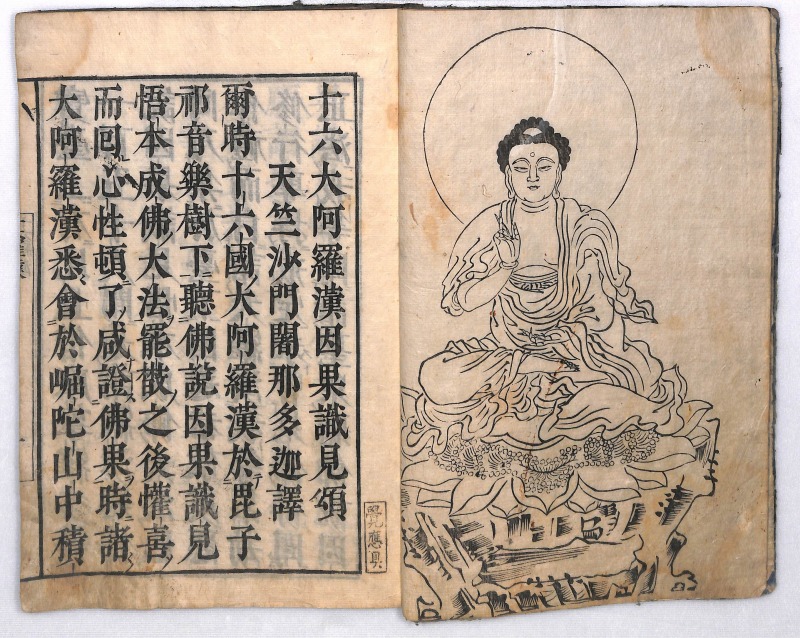 十六大阿羅漢因果識見頌
天竺沙門闍那多迦譯
爾時十六國大阿羅漢於毘子
祁音樂樹下聽佛說因果識見
悟本成佛大法罷散之後懽喜
而回心性頓了咸證佛果時諸
大阿羅漢悉會於崛陀山中積